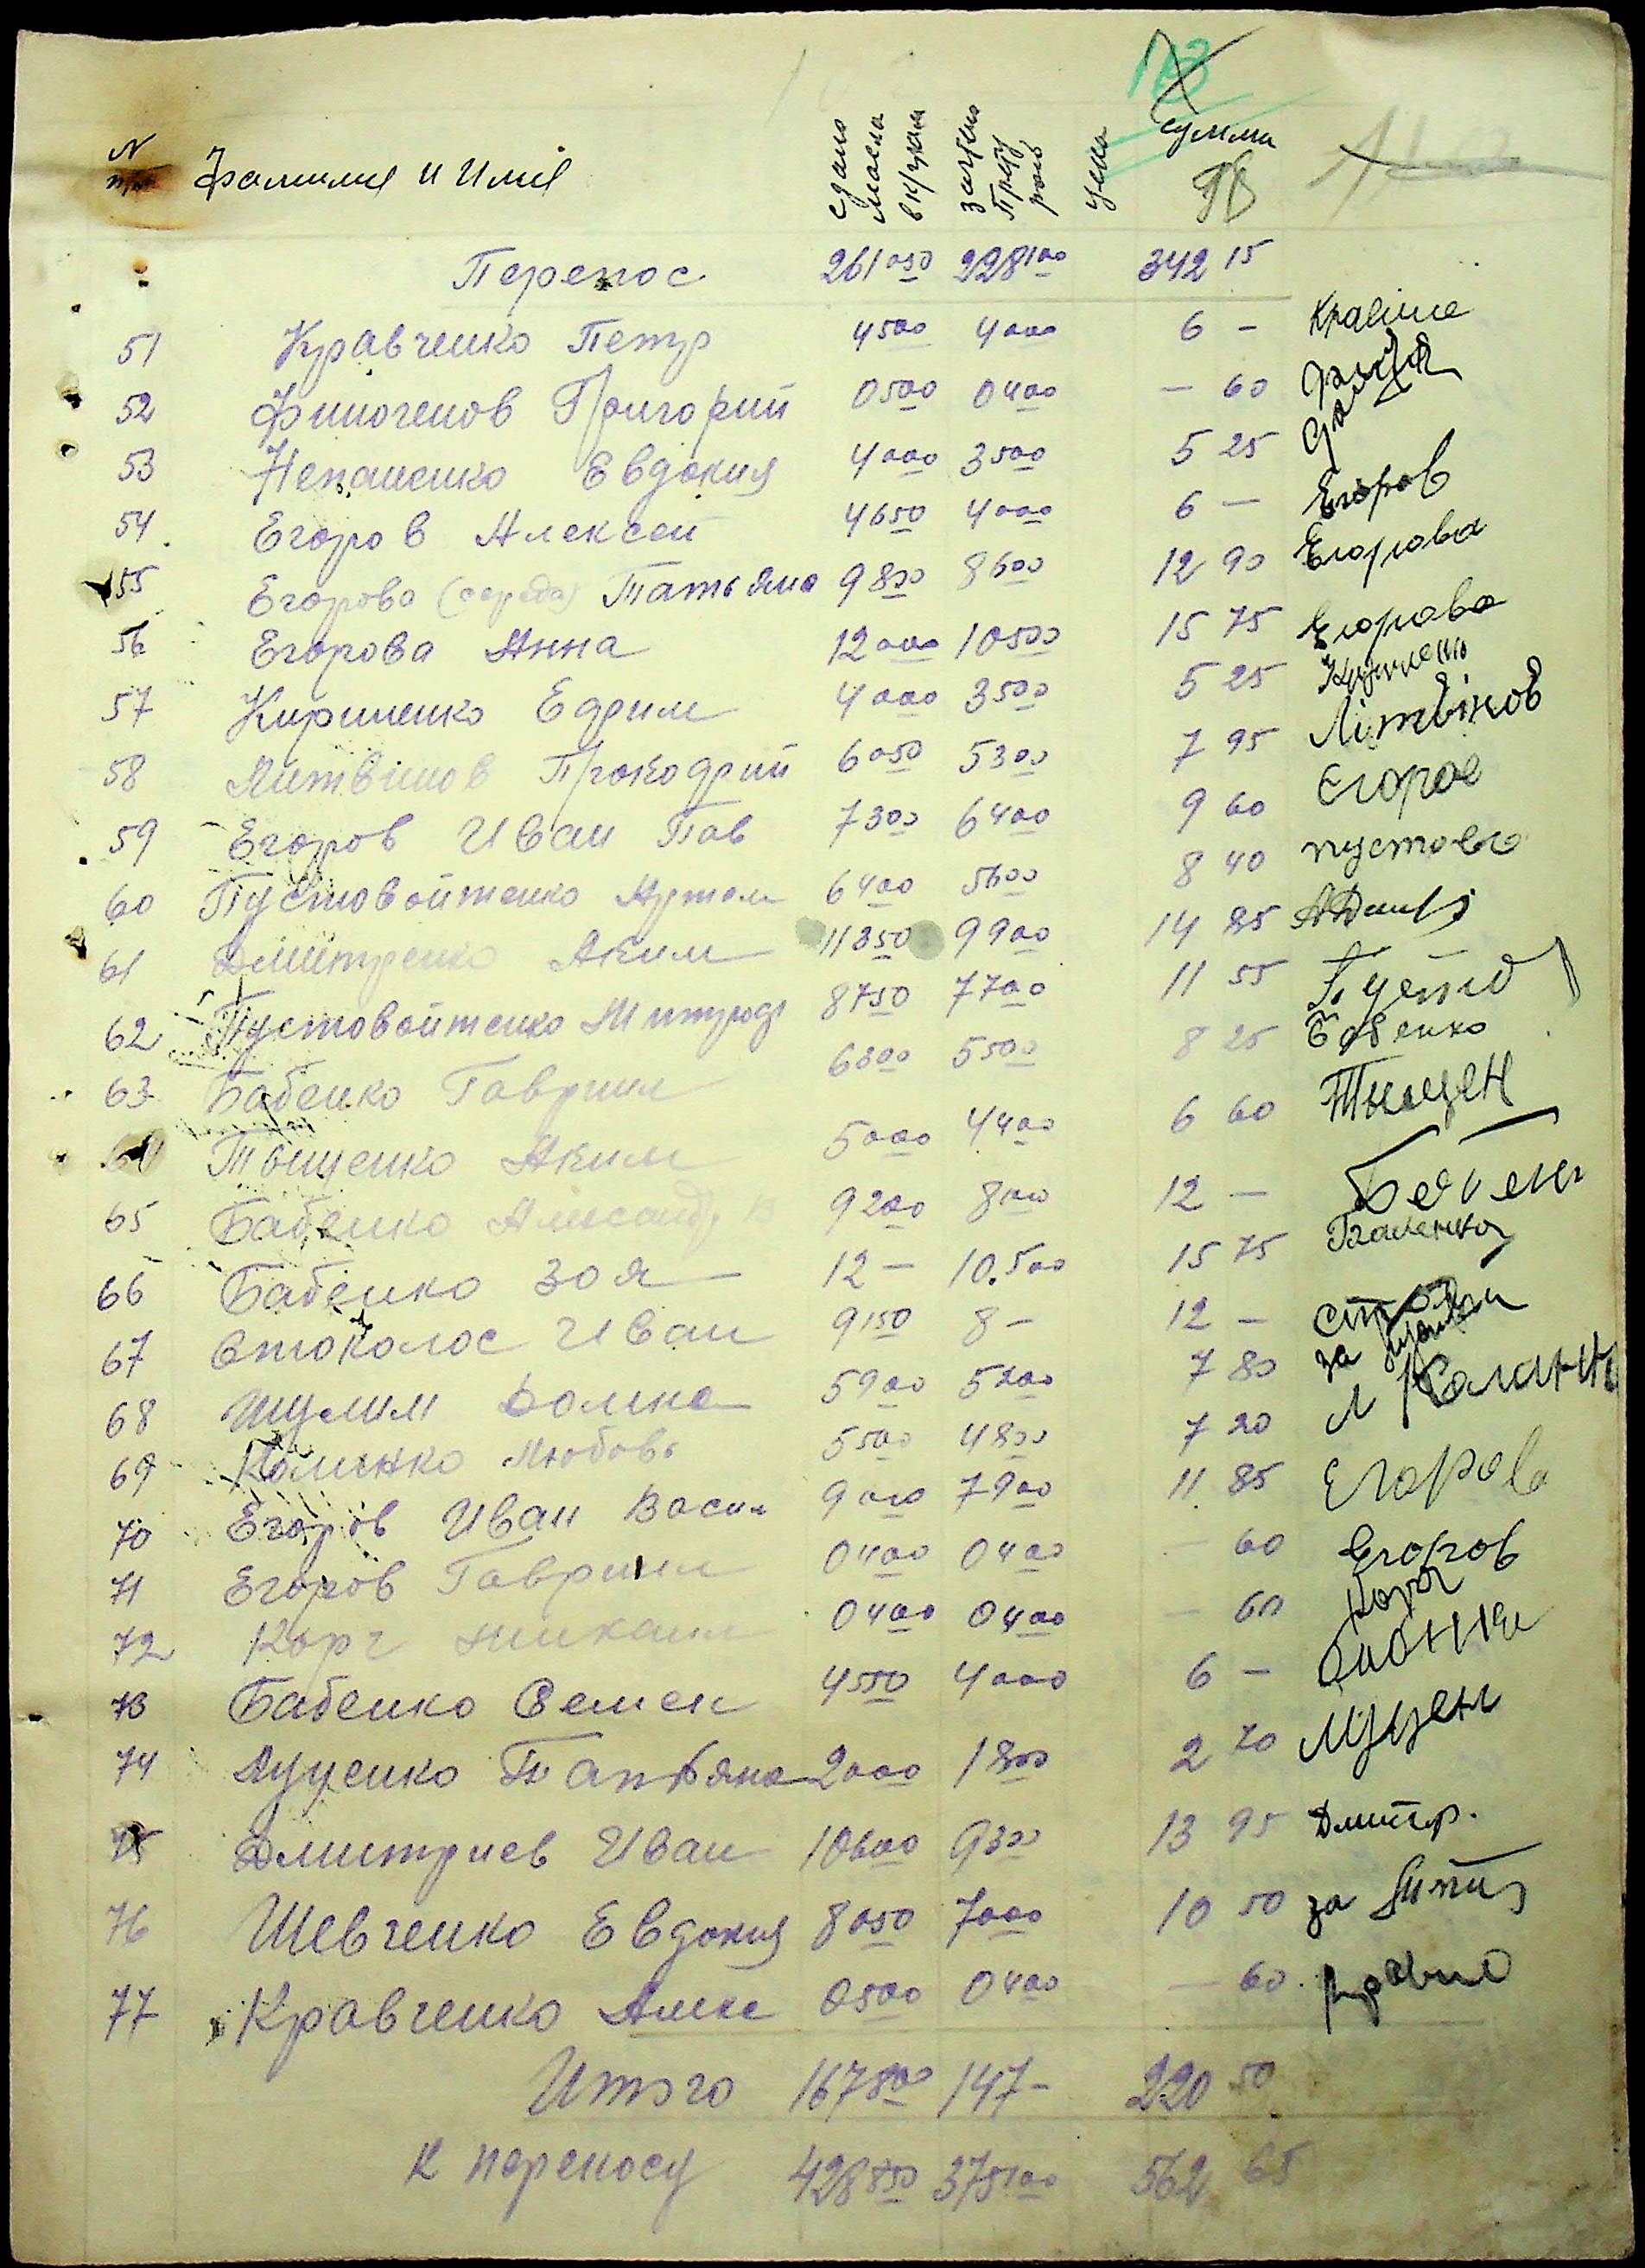 N п/п Фамилия и Имя сдано масла в к/грам зачтено Прод цена сумма
Перенос 261050 228100 342 15
51 Кравченко Петр 4500 4000 6 –
52 Финогенов Григорий 0500 0400 – 60
53 Непашенко Евдокия 4000 3500 5 25
54 Егоров Алексей 4650 4000 6 – Егоров
55 Егорова Татьяна 9800 8600 12 90 Егорова
56 Егорова Анна 12000 10500 15 75 Егорова
57 Кириченко Ефрим 4000 3500 5 25
58 Литвинов Прокофий 6050 5300 7 95 Літвінов
59 Егоров Иван Пав 7300 6400 9 60 Егоров
60 Пустовойтенко Артем 6400 5600 8 40 пустово
61 Дмитренко Аким 11350 9900 14 85
62 Пустовойтенко Митроф 8750 7700 11 55 Пусто
63 Бабенко Гаврил 6300 5500 8 25 Бабенко
64 Тыщенко Аким 5000 4400 6 60 Тыщен
65 Бабенко Александр В 9200 8000 12 –
66 Бабенко Зоя 12 – 10.500 15 75
67 Стоколос Иван 9150 8 – 12 – сто
68 Шулим Домна 5900 5200 7 80 за
69 Калинко Любовь 5500 4800 7 20
70 Егоров Иван Васил 9000 7900 11 85 Егорова
71 Егоров Гаврил 0400 0400 – 60 Егоров
72 Корг Михаил 0400 0400 – 60 Корг
73 Бабенко Семен 4550 4000 6 –
74 Луценко Татьяна 2000 1800 2 70 Луцен
75 Дмитриев Иван 10600 9300 13 95 Дмитр.
76 Шевченко Евдокия 8050 7000 10 50 за
77 Кравченко Алекс 0500 0400 – 60
Итого 167800 147 – 220 50
К переносу 428850 375100 562 65